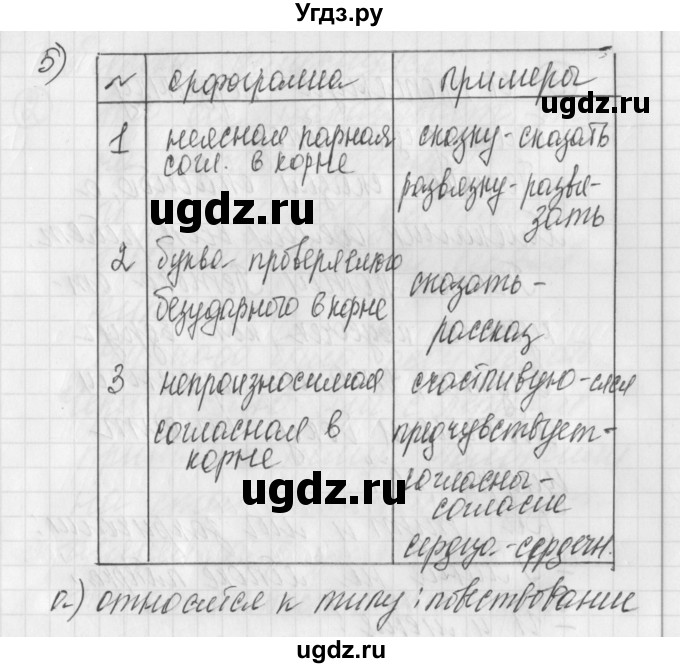 Угdz.ру
5)
№ орфограмма примеры
1 неясная парная согл. в корне сказку-сказать
развязку-развязать
2 буква проверяемого безударного в корне сказать-рассказ
3 непроизносимая согласная в корне счастливую-
предчувствует-
согласны-согласие
сердца-сердечн.
а) относится к типу: повествование
ugdz.ru
ugdz.ru
ugdz.ru
ugdz.ru
Угdz.ру